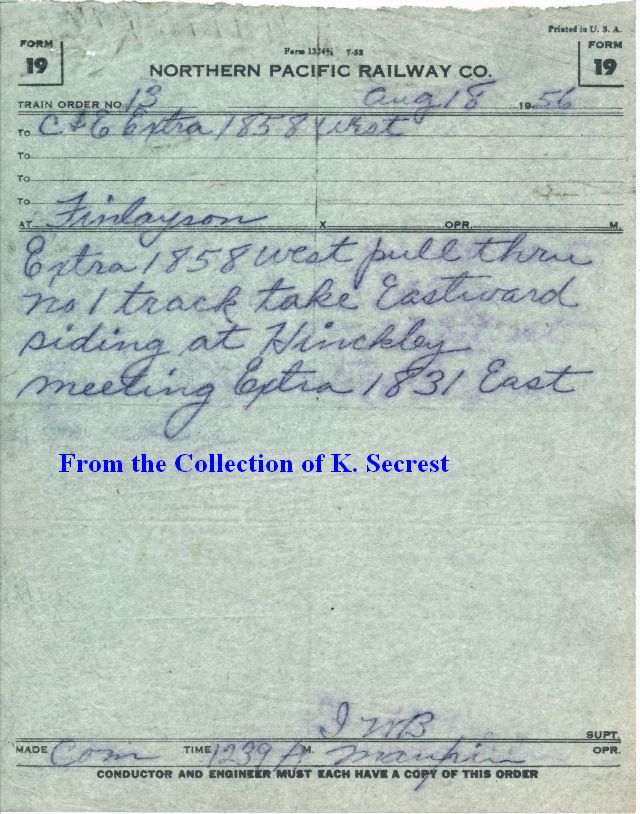 Printed in U. S. A.
FORM 19
Form 1324¾ 7-52
FORM 19
NORTHERN PACIFIC RAILWAY CO.
TRAIN ORDER NO. 13 Aug 18 1956
To C+E Extra 1858 West
To
To
To
AT Finlayson X OPR. M.
Extra 1858 West pull thru
No 1 track take Eastward
siding at Hinckley
meeting Extra 1831 East
From the Collection of K. Secrest
SUPT.
MADE Com TIME 1239 A M. Maupin OPR.
CONDUCTOR AND ENGINEER MUST EACH HAVE A COPY OF THIS ORDER